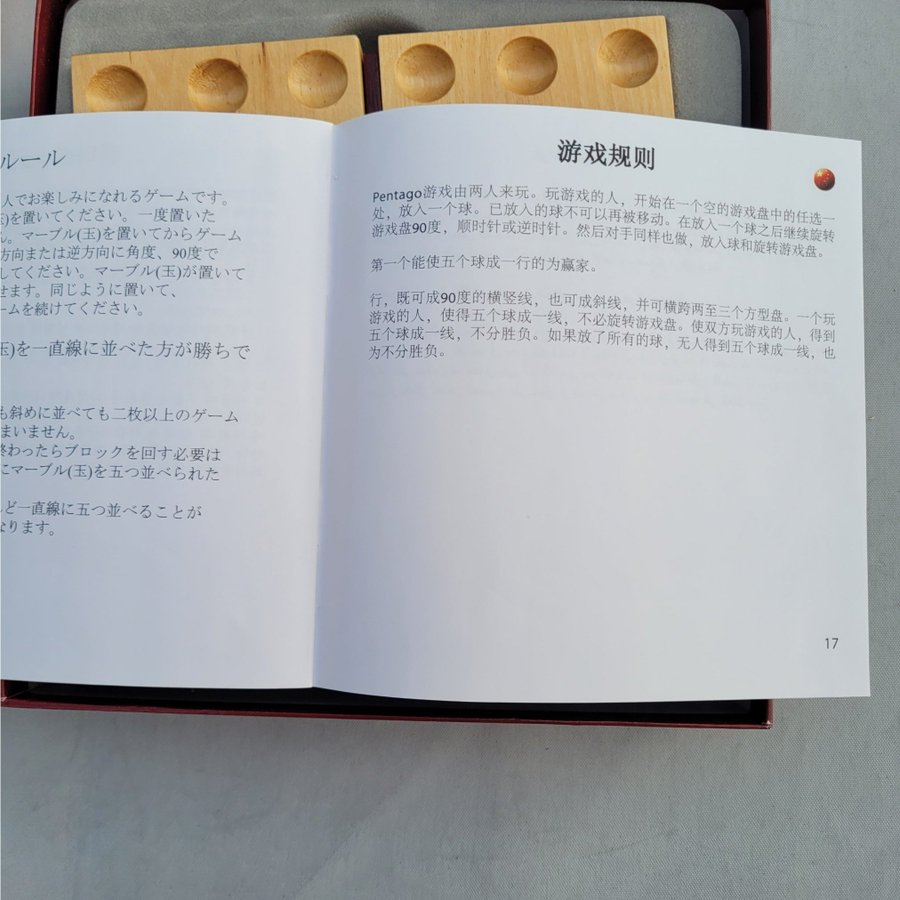 ルール
人でお楽しみになれるゲームです。
玉)を置いてください。一度置いた
ん。マーブル(玉)を置いてからゲーム
方向または逆方向に角度、90度で
してください。マーブル(玉)が置いて
せます。同じように置いて、
ームを続けてください。
玉)を一直線に並べた方が勝ちで
も斜めに並べても二枚以上のゲーム
まいません。
終わったらブロックを回す必要は
にマーブル(玉)を五つ並べられた
ど一直線に五つ並べることが
なります。
游戏规则
Pentago游戏由两人来玩。玩游戏的人，开始在一个空的游戏盘中的任选一
处，放入一个球。已放入的球不可以再被移动。在放入一个球之后继续旋转
游戏盘90度，顺时针或逆时针。然后对手同样也做，放入球和旋转游戏盘。
第一个能使五个球成一行的为赢家。
行，既可成90度的横竖线，也可成斜线，并可横跨两至三个方型盘。一个玩
游戏的人，使得五个球成一线，不必旋转游戏盘。使双方玩游戏的人，得到
五个球成一线，不分胜负。如果放了所有的球，无人得到五个球成一线，也
为不分胜负。
17